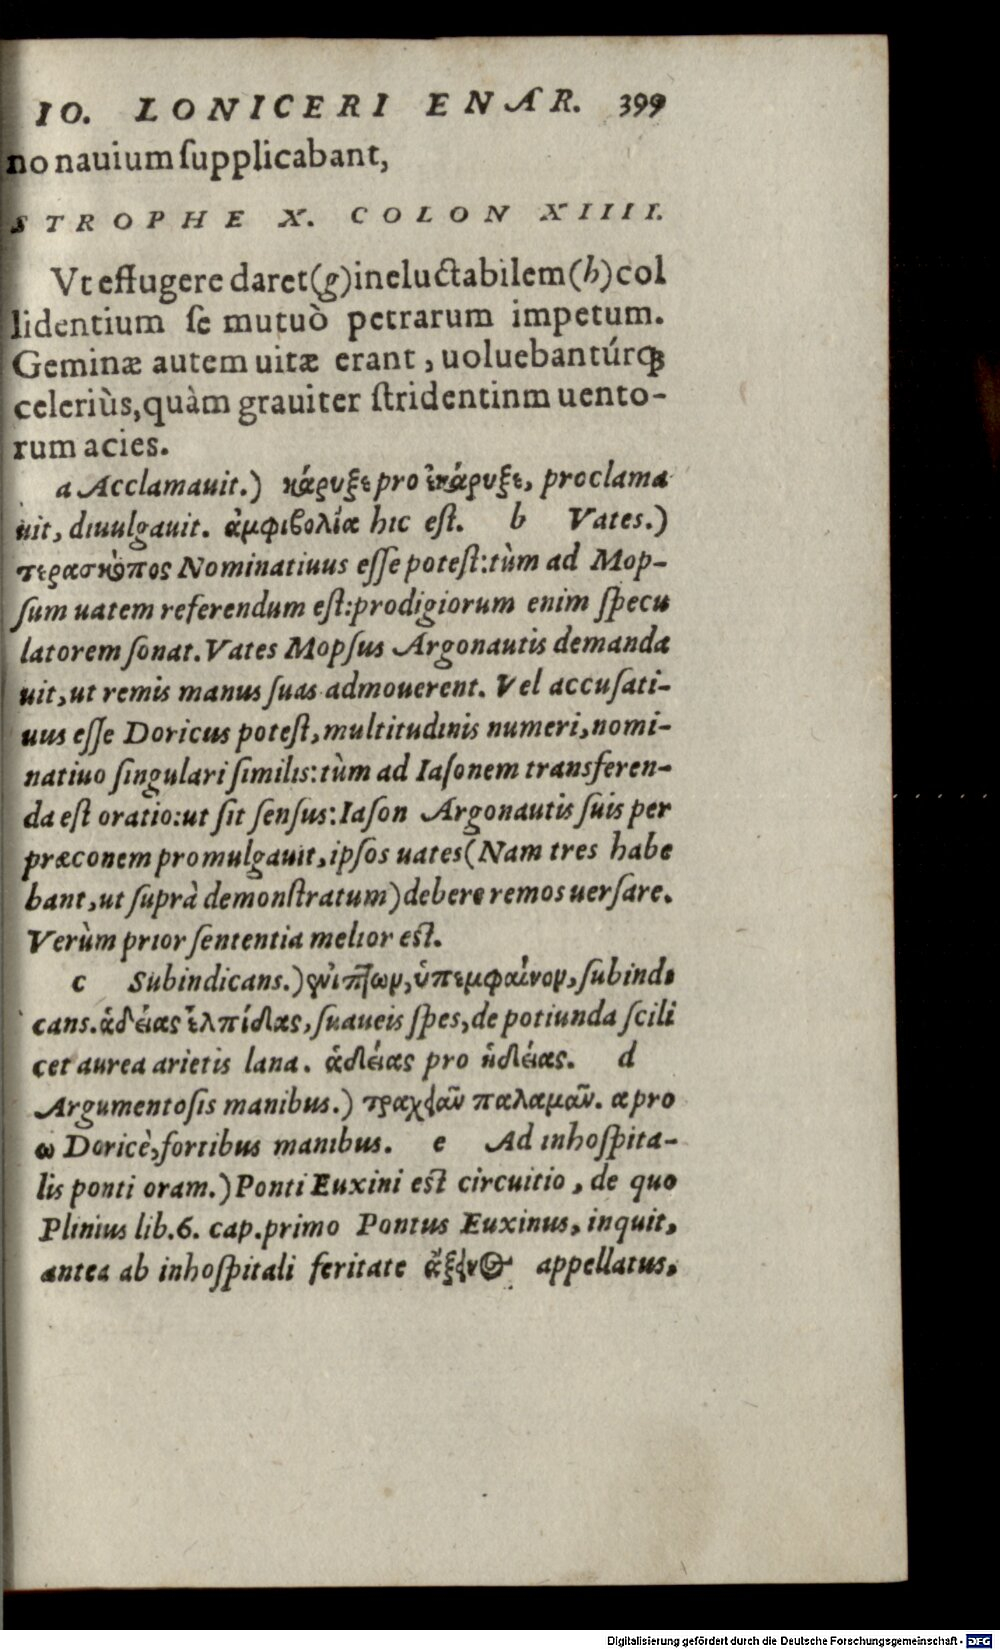 IO. LONICERI ENAR. 399
no nauium ſupplicabant,
STROPHE X. COLON XIIII.
Vt effugere daret(g)ineluctabilem(h)col
lidentium ſe mutuò petrarum impetum.
Geminæ autem uitæ erant, uoluebantúrꝗ
celeriùs, quàm grauiter ſtridentinm uento-
rum acies.
a Acclamauit.) κάρυξε pro ἐκάρυξε, proclama
uit, diuulgauit. ἀμφιβολία hic eſt. b Vates.)
τερασκόπος Nominatiuus eſſe poteſt: tùm ad Mop-
ſum uatem referendum eſt: prodigiorum enim ſpecu
latorem ſonat. Vates Mopſus Argonautis demanda
uit, ut remis manus ſuas admouerent. Vel accuſati-
uus eſſe Doricus poteſt, multitudinis numeri, nomi-
natiuo ſingulari ſimilis: tùm ad Iaſonem transferen-
da eſt oratio: ut ſit ſenſus: Iaſon Argonautis ſuis per
præconem promulgauit, ipſos uates (Nam tres habe
bant, ut ſuprà demonſtratum) debere remos uerſare.
Verùm prior ſententia melior eſt.
c Subindicans.) ἐνίπτων, ὑπεμφαίνον, ſubindi
cans. ἁδείας ἐλπίδας, ſuaueis ſpes, de potiunda ſcili
cet aurea arietis lana. ἁδείας pro ἡδείας. d
Argumentoſis manibus.) τραχειᾶν παλαμᾶν. α pro
ω Doricè, fortibus manibus. e Ad inhoſpita-
lis ponti oram.) Ponti Euxini eſt circuitio, de quo
Plinius lib. 6. cap. primo Pontus Euxinus, inquit,
antea ab inhoſpitali feritate ἄξεινος appellatus.
Digitalisierung gefördert durch die Deutsche Forschungsgemeinschaft - DFG